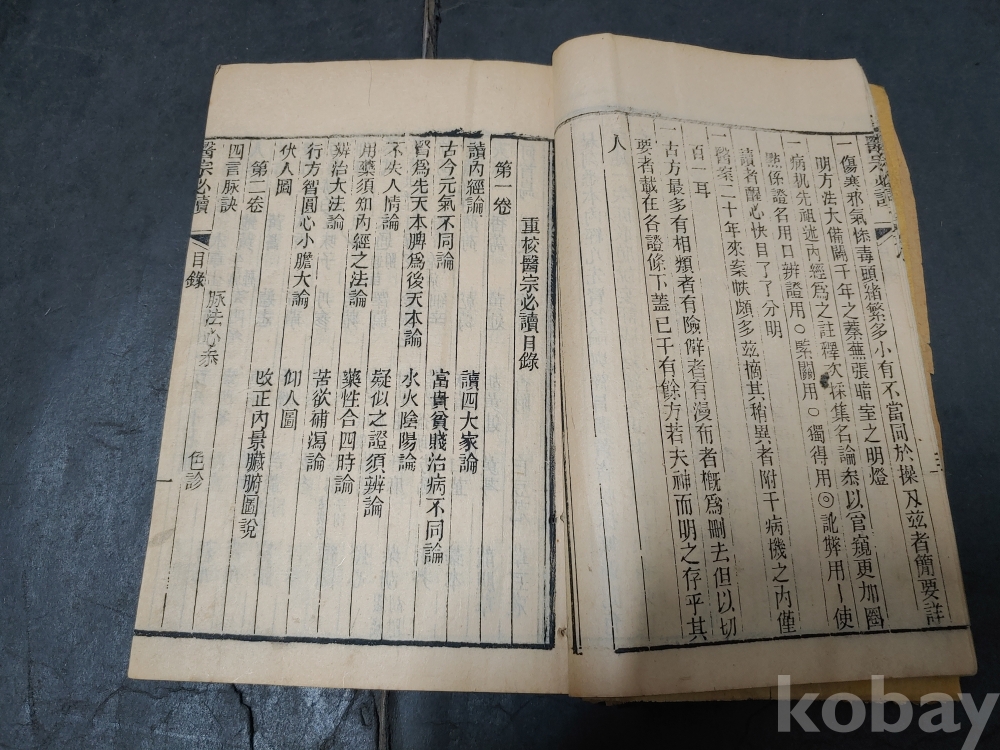 一傷寒邪氣慘毒頭緒繁多小有不當同於操刃茲者簡要詳
明方法大備闢千年之蓁蕪張暗室之明燈
一病机先祖述內經為之註釋次採集名論叅以管窺更加圈
點係證名用口辨證用○緊關用○獨得用◎訛弊用丨使
讀者醒心快目了了分明
一醫案二十年來案帙頗多茲摘其稍異者附于病機之內僅
百一耳
一古方最多有相類者有險僻者有漫而者概為刪去但以切
要者載在各證條下蓋已千有餘方若夫神而明之存乎其
人
重校醫宗必讀目錄
第一卷
讀內經論 讀四大家論
古今元氣不同論 富貴貧賤治病不同論
腎為先天本脾為後天本論 水火陰陽論
不失人情論 疑似之證須辨論
用藥須知內經之法論 藥性合四時論
辨治大法論 苦欲補瀉論
行方智圓心小膽大論 仰人圖
伏人圖 改正內景臟腑圖說
第二卷
四言脉訣 脈法心叅 色診
醫宗必讀 目錄 一
kobay